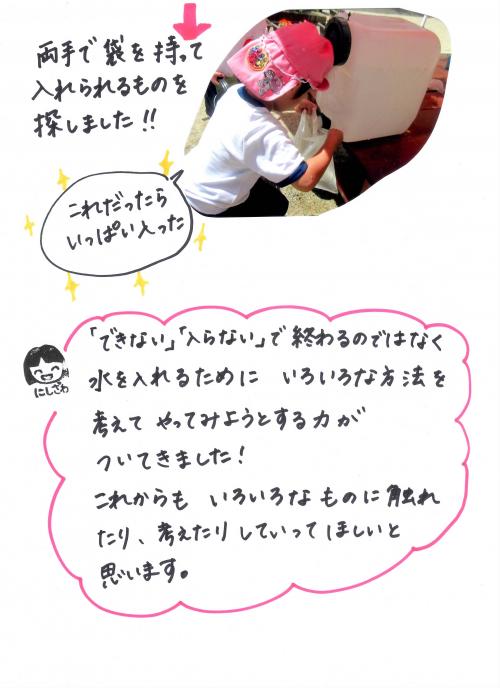 両手で袋を持って
入れられるものを
探しました!!
これだったら
いっぱい入った
「できない」「入らない」で終わるのではなく
水を入れるために いろいろな方法を
考えて やってみようとする力が
ついてきました!
これからも いろいろな ものに触れ
たり、考えたりしていってほしいと
思います。
にしざわ